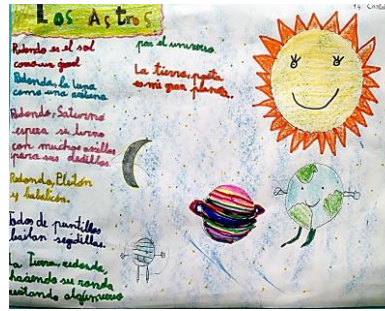 Los Astros
Redondo es el sol
como un gool
Redonda, la luna
como una aceituna
Redondo, Saturno
espera su turno
con muchos anillos
para sus deditos.
Redondo, Plutón
y
Todos de puntillas
bailan seguidillas.
La Tierra, redonda,
haciendo su ronda
por el universo.
La tierra, poeta
es mi gran planeta.